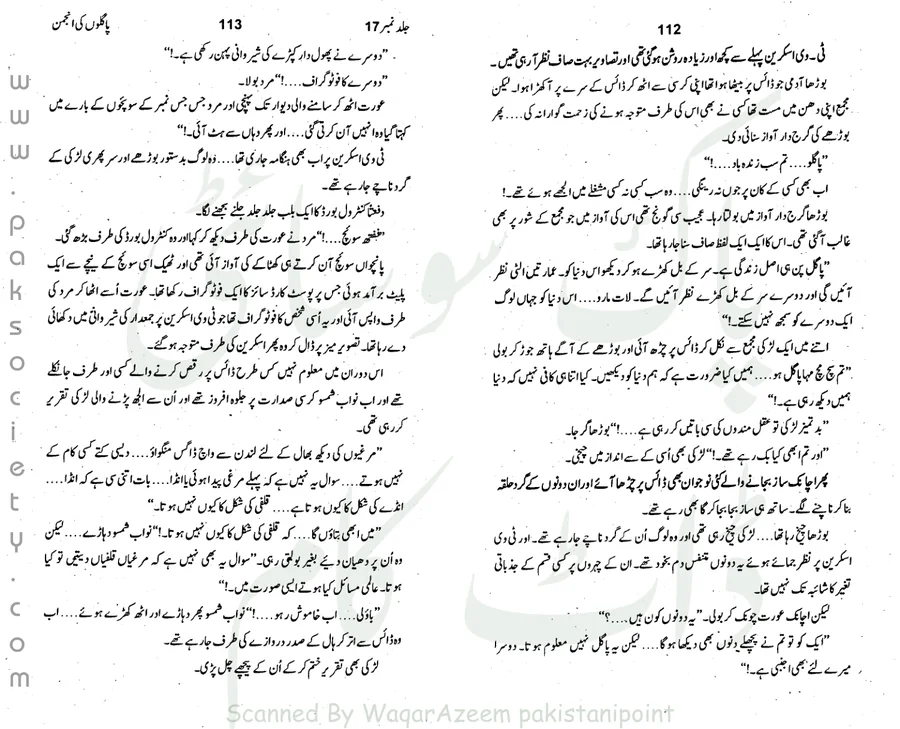 112
ٹی۔وی اسکرین پہلے سے کچھ اور زیادہ روشن ہو گئی تھی اور تصاویر بہت صاف نظر آ رہی تھیں۔
بوڑھا آدمی جو ڈائس پر بیٹھا ہوا تھا اپنی کرسی سے اٹھ کر ڈائس کے سرے پر آ کھڑا ہوا۔ لیکن
مجمع اپنی دھن میں مست تھا کسی نے بھی اس کی طرف متوجہ ہونے کی زحمت گوارا نہ کی.... پھر
بوڑھے کی گرج دار آواز سنائی دی۔
”پاگلو.... تم سب زندہ باد....!“
اب بھی کسی کے کان پر جوں نہ رینگی.... وہ سب کسی نہ کسی مشغلے میں الجھے ہوئے تھے۔!
بوڑھا گرج دار آواز میں بولتا رہا۔ عجیب سی گونج تھی اس کی آواز میں جو مجمع کے شور پر بھی
غالب آ گئی تھی۔ اس کا ایک ایک لفظ صاف سنا جا رہا تھا۔
”پاگل پن ہی اصل زندگی ہے۔ سر کے بل کھڑے ہو کر دیکھو اس دنیا کو۔ عمارتیں الٹی نظر
آئیں گی اور دوسرے سر کے بل کھڑے نظر آئیں گے۔ لات مارو.... اس دنیا کو جہاں لوگ
ایک دوسرے کو سمجھ نہیں سکتے۔!“
اتنے میں ایک لڑکی مجمع سے نکل کر ڈائس پر چڑھ آئی اور بوڑھے کے آگے ہاتھ جوڑ کر بولی
”تم سچ مچ مہا پاگل ہو.... ہمیں کیا ضرورت ہے کہ ہم دنیا کو دیکھیں۔ کیا اتنا ہی کافی نہیں کہ دنیا
ہمیں دیکھ رہی ہے۔!“
”بدتمیز لڑکی تو عقل مندوں کی سی باتیں کر رہی ہے....!“ بوڑھا گرجا۔
”اور تم ابھی کیا بک رہے تھے۔!“ لڑکی بھی اُسی کے سے انداز میں چیخی۔
پھر اچانک ساز بجانے والے کئی نوجوان بھی ڈائس پر چڑھ آئے اور ان دونوں کے گرد حلقہ
بنا کر ناچنے لگے۔ ساتھ ہی ساز بجا بجا کر گا بھی رہے تھے۔
بوڑھا چیخ رہا تھا.... لڑکی چیخ رہی تھی اور وہ لوگ اُن کے گرد ناچے جا رہے تھے۔ اور ٹی وی
اسکرین پر نظر جمائے ہوئے یہ دونوں متنفس دم بخود تھے۔ ان کے چہروں پر کسی قسم کے جذباتی
تغیر کا شائبہ تک نہیں تھا۔
لیکن اچانک عورت چونک کر بولی۔ ”یہ دونوں کون ہیں....؟“
”ایک کو تو تم نے پچھلے دنوں بھی دیکھا ہوگا.... لیکن یہ پاگل نہیں معلوم ہوتا۔ دوسرا
میرے لئے بھی اجنبی ہے۔!“
پاگلوں کی انجمن 113 جلد نمبر 17
”دوسرے نے پھول دار کپڑے کی شیروانی پہن رکھی ہے۔!“
”دوسرے کا فوٹوگراف....!“ مرد بولا۔
عورت اٹھ کر سامنے والی دیوار تک پہنچی اور مرد جس جس نمبر کے سوئچوں کے بارے میں
کہتا گیا وہ انہیں آن کرتی گئی.... اور پھر وہاں سے ہٹ آئی۔!“
ٹی وی اسکرین پر اب بھی ہنگامہ جاری تھا.... وہ لوگ بدستور بوڑھے اور سر پھری لڑکی کے
گرد ناچے جا رہے تھے۔
دفعتاً کنٹرول بورڈ کا ایک بلب جلد جلد جلنے بجھنے لگا۔
”ففتھ سوئچ....!“ مرد نے عورت کی طرف دیکھ کر کہا اور وہ کنٹرول بورڈ کی طرف بڑھ گئی۔
پانچواں سوئچ آن کرتے ہی کھٹاکے کی آواز آئی تھی اور ٹھیک اسی سوئچ کے نیچے سے ایک
پلیٹ برآمد ہوئی جس پر پوسٹ کارڈ سائز کا ایک فوٹوگراف رکھا تھا۔ عورت اُسے اٹھا کر مرد کی
طرف واپس آئی اور یہ اُسی شخص کا فوٹوگراف تھا جو ٹی وی اسکرین پر جمعدار کی شیروانی میں دکھائی
دے رہا تھا۔ تصویر میز پر ڈال کر وہ پھر اسکرین کی طرف متوجہ ہو گئے۔
اس دوران میں معلوم نہیں کس طرح ڈائس پر رقص کرنے والے کسی اور طرف جا نکلے
تھے اور اب نواب شمسو کرسی صدارت پر جلوہ افروز تھے اور اُن سے الجھ پڑنے والی لڑکی تقریر
کر رہی تھی۔
”مرغیوں کی دیکھ بھال کے لئے لندن سے واچ ڈاگس منگواؤ.... دیسی کتے کسی کام کے
نہیں ہوتے.... سوال یہ نہیں ہے کہ پہلے مرغی پیدا ہوئی یا انڈا.... بات اتنی سی ہے کہ انڈا....
انڈے کی شکل کا کیوں ہوتا ہے.... قلفی کی شکل کا کیوں نہیں ہوتا۔“
”میں ابھی بتاؤں گا.... کہ قلفی کی شکل کا کیوں نہیں ہوتا۔!“ نواب شمسو دہاڑے.... لیکن
وہ اُن پر دھیان دیئے بغیر بولتی رہی۔ ”سوال یہ بھی نہیں ہے کہ مرغیاں قلفیاں دیتیں تو کیا
ہوتا۔ عالمی مسائل کیا ہوتے ایسی صورت میں۔!“
”باؤلی.... اب خاموش رہو....!“ نواب شمسو پھر دہاڑے اور اٹھ کھڑے ہوئے.... اب
وہ ڈائس سے اتر کر ہال کے صدر دروازے کی طرف جا رہے تھے۔
لڑکی بھی تقریر ختم کر کے اُن کے پیچھے چل پڑی۔
www.paksociety.com
پاک سوسائٹی ڈاٹ کام
Scanned By WaqarAzeem pakistanipoint